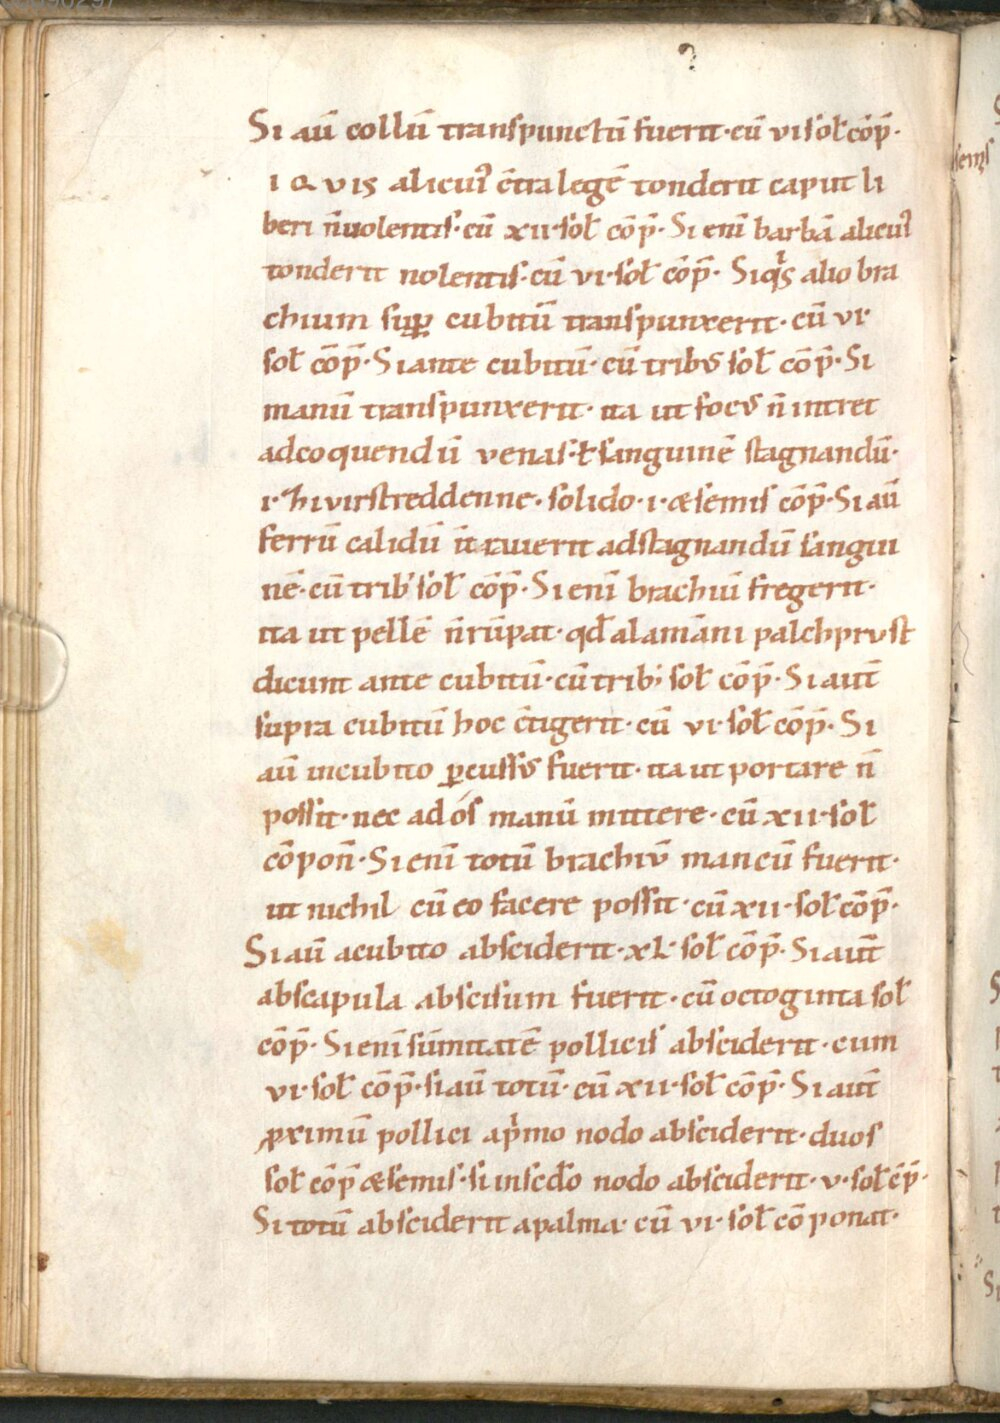 Si aū collū transpunctū fuerit·cū vi sol̄ cōp̄·
i Q vis alicuiꝰ c̄tra legē tonderit caput li
beri n̄ uolentis·cū xii·sol̄ cōp̄·Si enī barbā alicuiꝰ
tonderit nolentis·cū vi·sol̄ cōp̄· Si qͥs alio bra
chium suꝑ cubitū transpunxerit·cū vi·
sol̄ cōp̄·Si ante cubitū·cū tribus sol̄ cōp̄·Si
manū transpunxerit· ita ut focus n̄ intret
ad coquendū venas·ł sanguinē stagnandū·
i·hivirstreddenne·solido·i·æ semis cōp̄·Si aū
ferrū calidū n̄ ierit ad stagnandū sangui
nē·cū trib; sol̄ cōp̄·Si enī brachiū fregerit·
ita ut pellē n̄ rūpat·qd̄ alamāni palchprust
dicunt ante cubitū·cū trib; sol̄ cōp̄·Si aut̄
supra cubitū hoc c̄tigerit·cū vi·sol̄ cōp̄·Si
aū in cubito ꝑcussus fuerit·ita ut portare n̄
possit·nec ad ós manū mittere·cū xii·sol̄
cōpon̄·Si enī totū brachiū mancū fuerit·
ut nichil cū eo facere possit·cū xii·sol̄ cōp̄·
Si aū a cubito absciderit·xL·sol̄ cōp̄·Si aut̄
abscapula abscisum fuerit·cū octoginta sol̄
cōp̄·Si enī sūmitatē pollicis absciderit·cum
vi·sol̄ cōp̄·si aū totū·cū xii·sol̄ cōp̄·Si aut̄
ꝓximū pollici a pͥmo nodo absciderit·duos
sol̄ cōp̄ æ semis·si in scd̄o nodo absciderit·v·sol̄ c̄p̄·
Si totū absciderit a palma·cū vi·sol̄ cōponat·